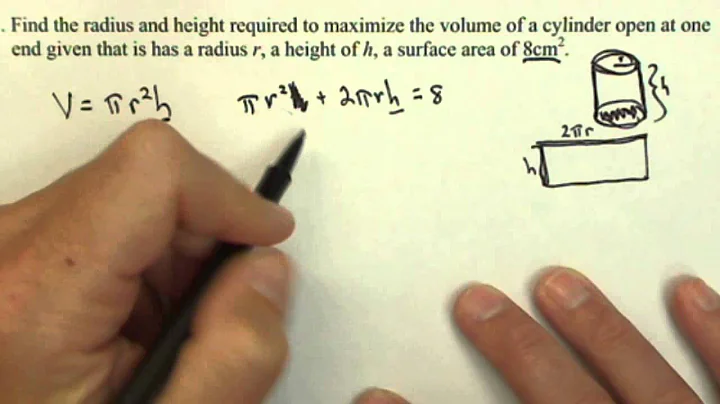 . Find the radius and height required to maximize the volume of a cylinder open at one
end given that is has a radius r, a height of h, a surface area of 8cm².
V = πr²h
πr² + 2πrh = 8
r
h
2πr
h